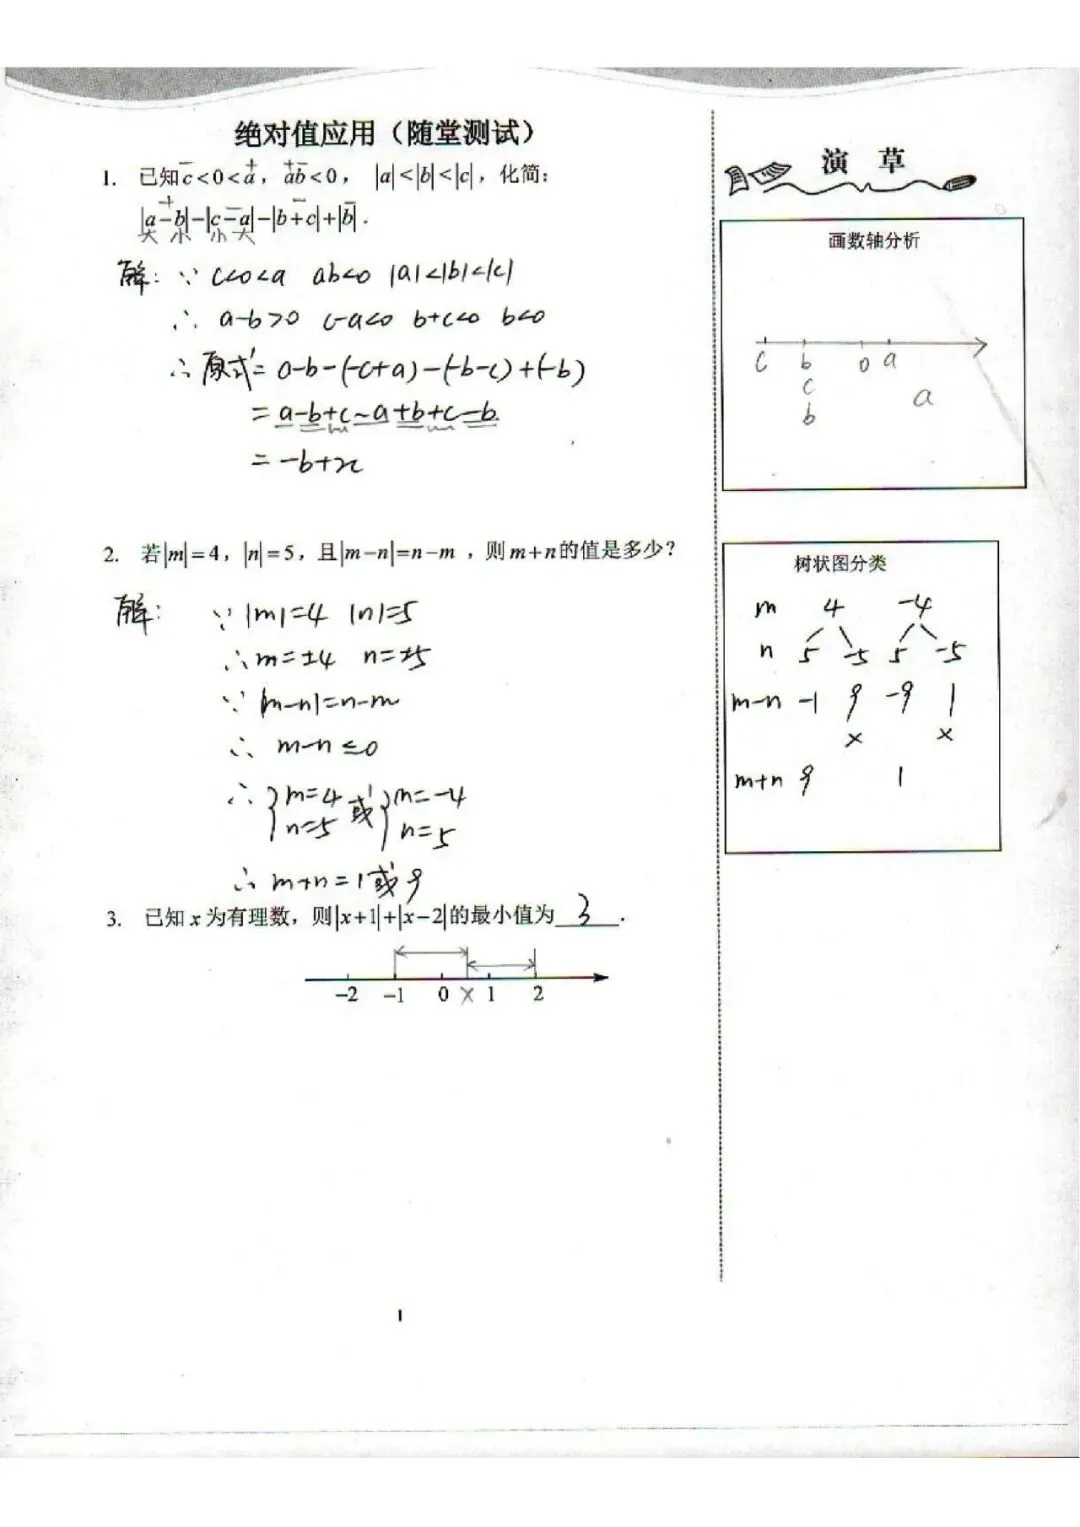 绝对值应用（随堂测试）
1. 已知c<0<a，ab<0，|a|<|b|<|c|，化简：
|a-b|-|c-a|-|b+c|+|b|.
大 小 小 大
解：∵ c<0<a ab<0 |a|<|b|<|c|
∴ a-b>0 c-a<0 b+c<0 b<0
∴ 原式= a-b-(-c+a)-(-b-c)+(-b)
= a-b+c-a+b+c-b
= -b+2c
2. 若|m|=4，|n|=5，且|m-n|=n-m，则m+n的值是多少？
解： ∵ |m|=4 |n|=5
∴ m=±4 n=±5
∵ |m-n|=n-m
∴ m-n≤0
∴ {m=4 或 {m=-4
n=5 n=5
∴ m+n=1或9
3. 已知x为有理数，则|x+1|+|x-2|的最小值为 3 .
-2 -1 0 x 1 2
1
演 草
画数轴分析
c b 0 a
c a
b
树状图分类
m 4 -4
n 5 -5 5 -5
m-n -1 9 -9 1
× ×
m+n 9 1